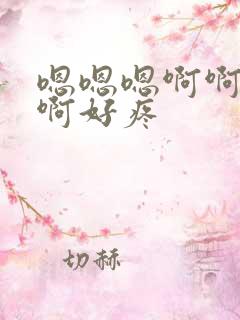 嗯嗯嗯啊啊
啊好疼
切赫